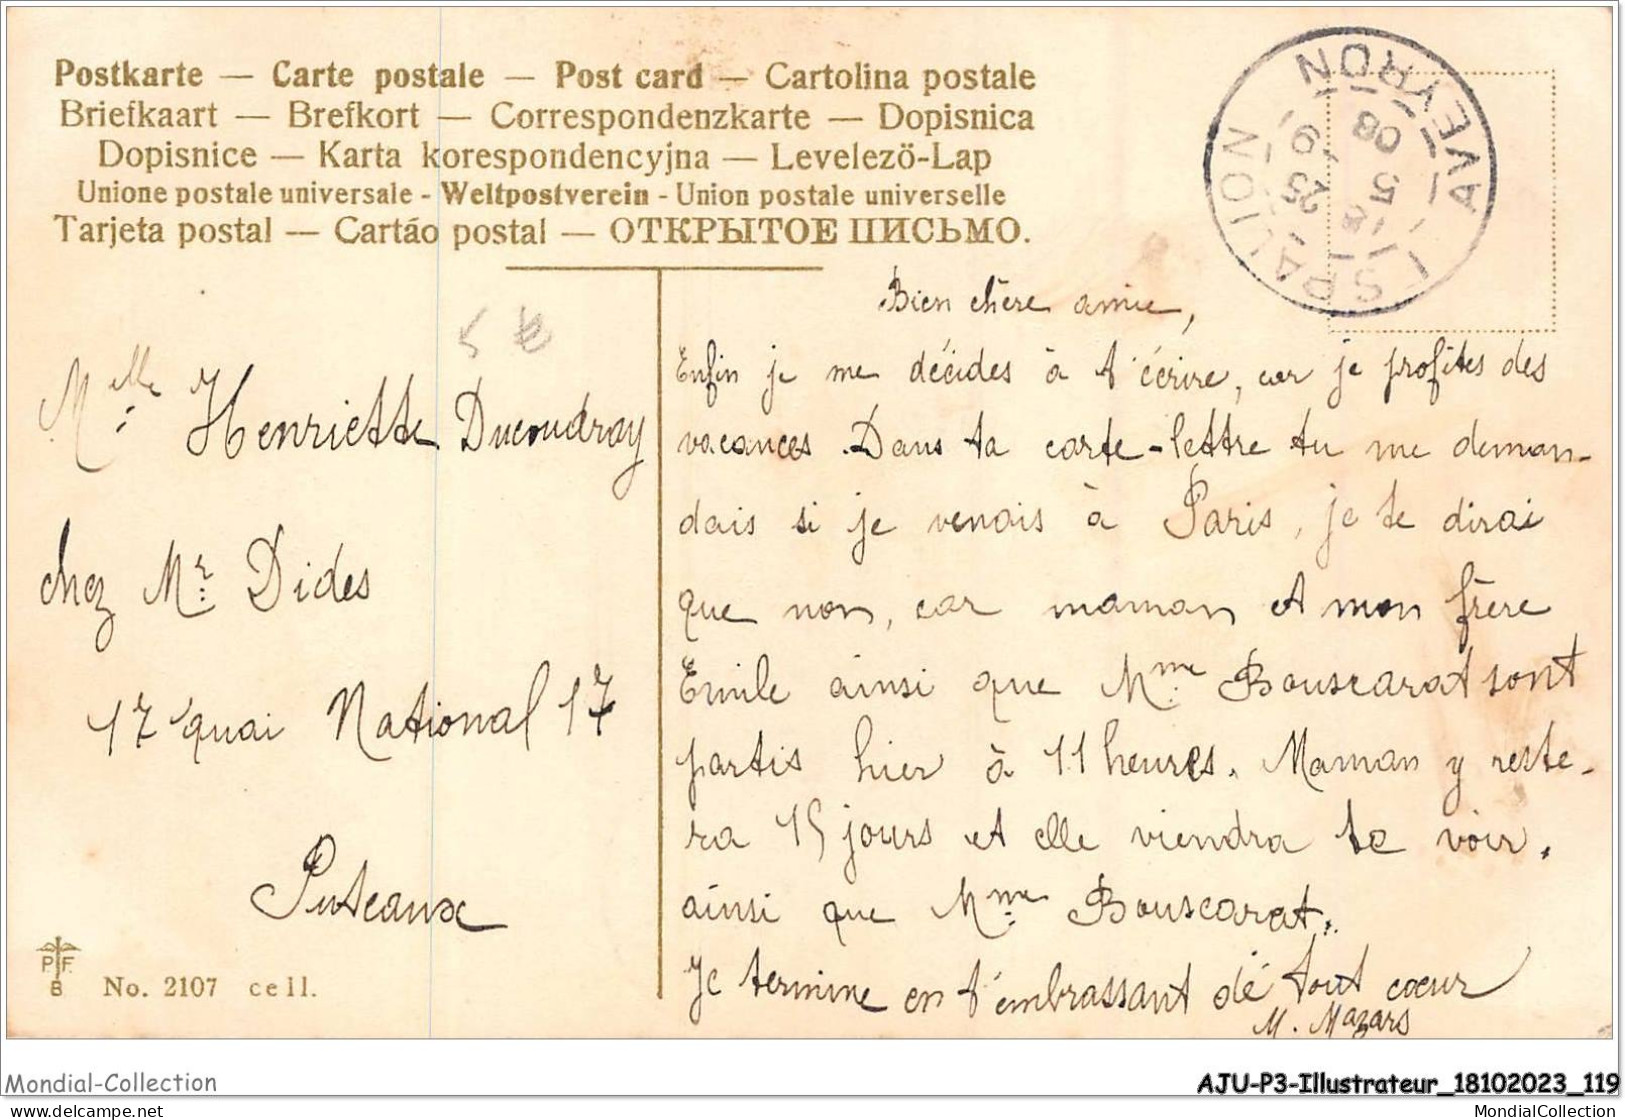 Postkarte — Carte postale — Post card — Cartolina postale
Briefkaart — Brefkort — Correspondenzkarte — Dopisnica
Dopisnice — Karta korespondencyjna — Levelezö-Lap
Unione postale universale - Weltpostverein - Union postale universelle
Tarjeta postal — Cartáo postal — ОТКРЫТОЕ ПИСЬМО.
ESPALION
AVEYRON
5 €
Melle Henriette Ducoudray
chez Mr: Dides
17 quai National 17
Puteaux
P. F.
B
No. 2107 cell.
Bien chère amie,
Enfin je me décides à t'écrire, car je profites des
vacances. Dans ta carte-lettre tu me deman-
dais si je venais à Paris, je te dirai
que non, car maman et mon frère
Emile ainsi que Mme Bouscarat sont
partis hier à 11 heures. Maman y reste-
ra 15 jours et elle viendra te voir.
ainsi que Mme Bouscarat.
Je termine en t'embrassant de tout cœur
M. Mazars
Mondial-Collection
AJU-P3-Illustrateur_18102023_119
https://www.delcampe.net
MondialCollection